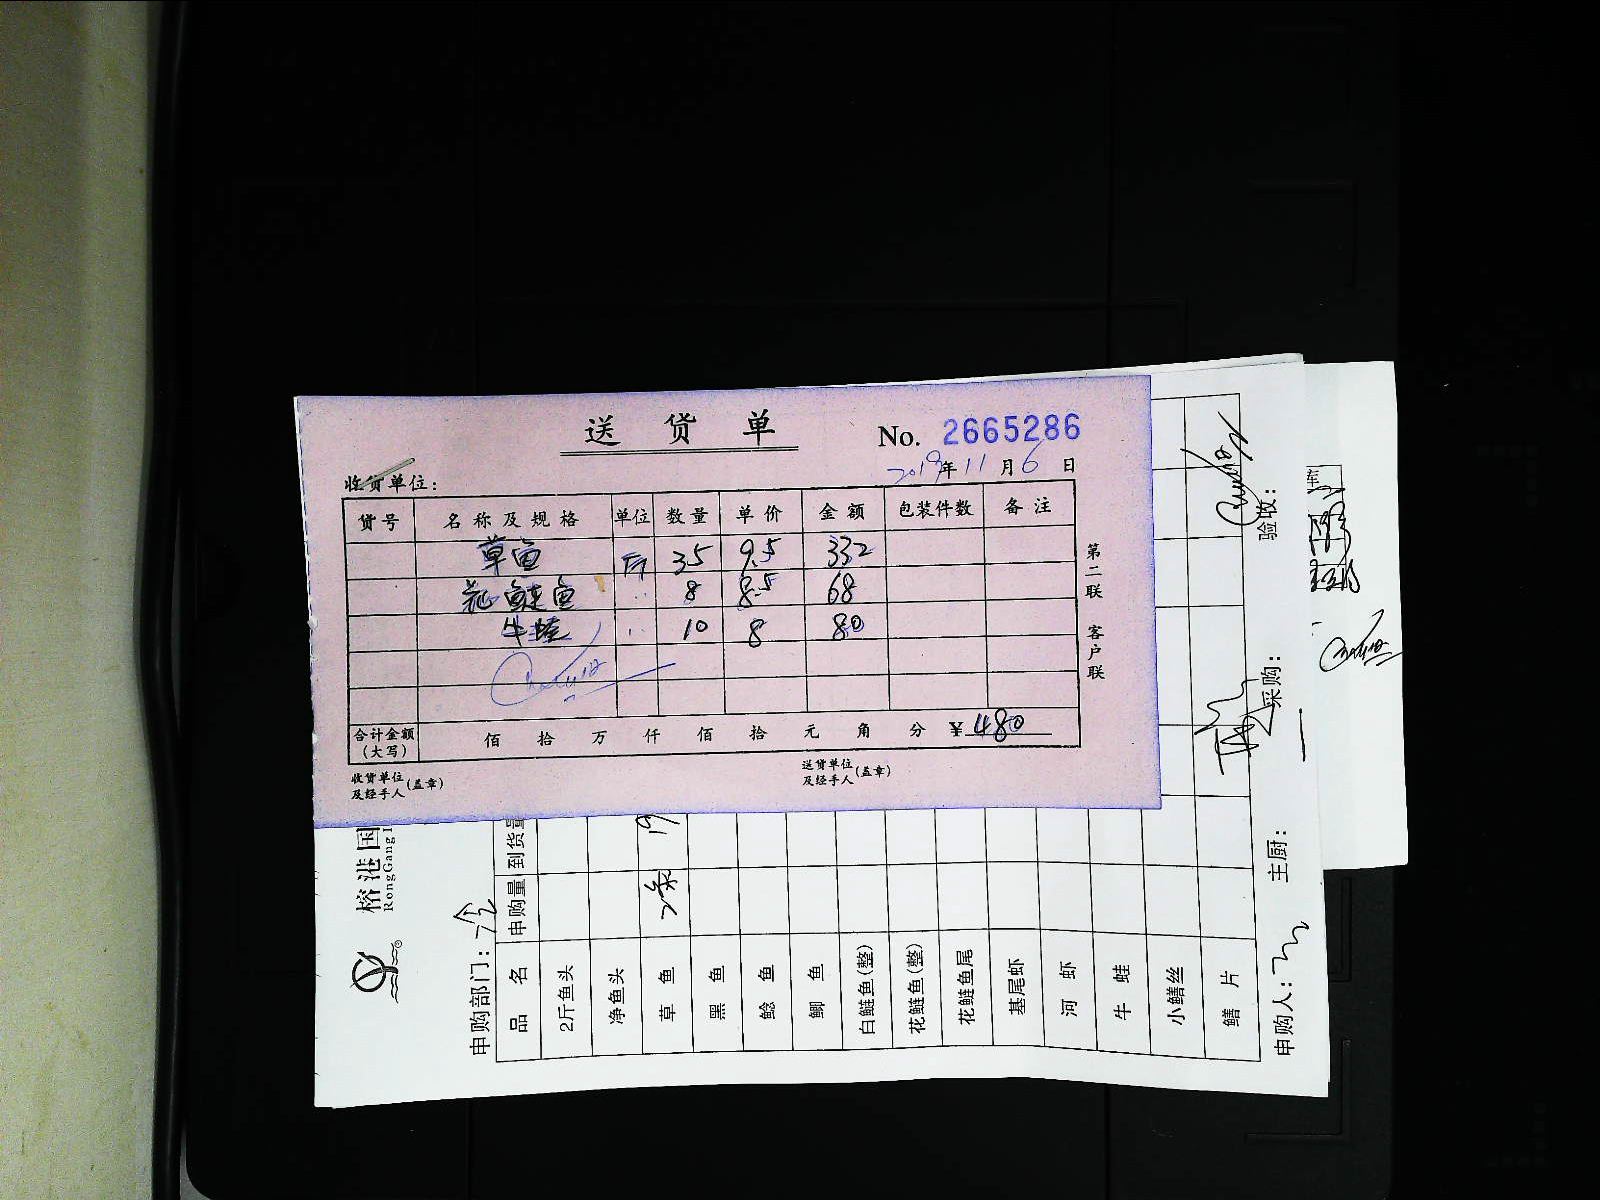 送货单
No. 2665286
2019年11月6日
收货单位：
货号 名称及规格 单位 数量 单价 金额 包装件数 备注
草鱼 斤 35 9.5 332
花鲢鱼 〃 8 8.5 68
牛蛙 〃 10 8 80
合计金额（大写） 佰 拾 万 仟 佰 拾 元 角 分 ¥480
收货单位及经手人（盖章）
送货单位及经手人（盖章）
第二联 客户联
榕港国
RongGang
申购部门：冷
品名 申购量 到货量
2斤鱼头
净鱼头
草鱼 2条 19
黑鱼
鲶鱼
鲫鱼
白鲢鱼(整)
花鲢鱼(整)
花鲢鱼尾
基尾虾
河虾
牛蛙
小鳝丝
鳝片
申购人： 主厨： 采购： 验收：